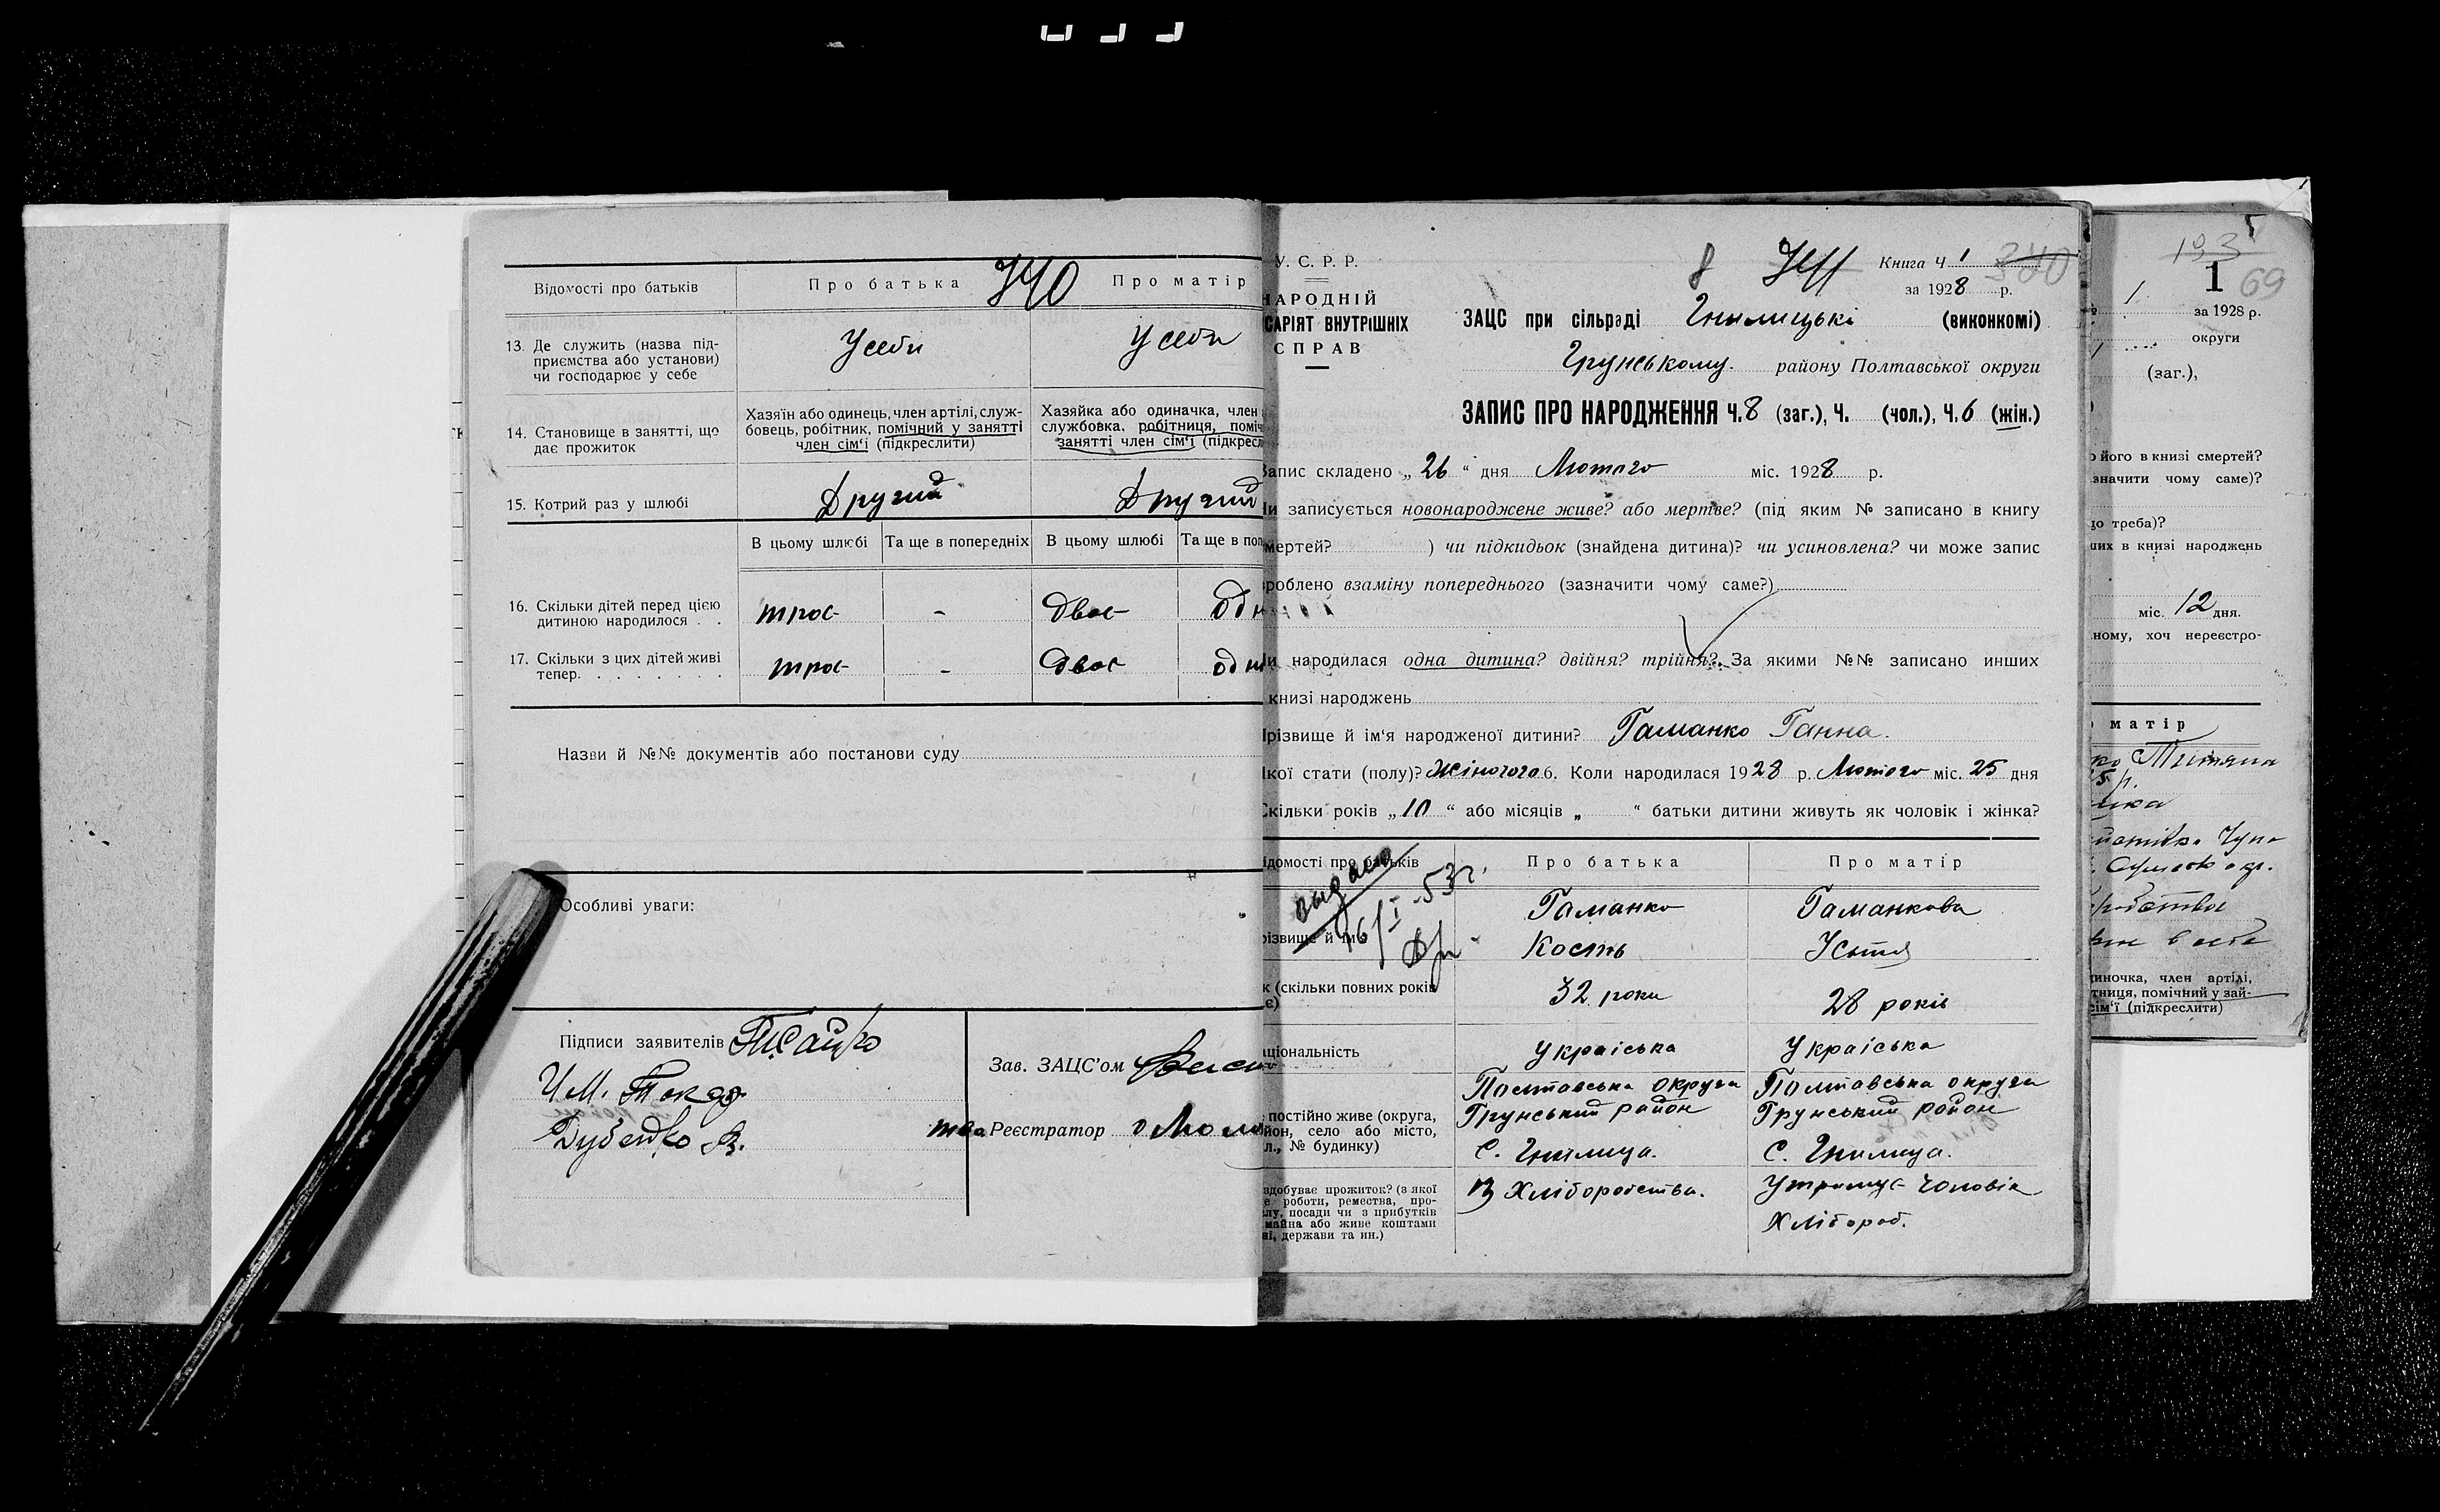 Відомості про батьків
Про батька
340
Про матір
13. Де служить (назва під-
приємства або установи)
чи господарює у себе
У себи
У себи
14. Становище в занятті, що
дає прожиток
Хазяїн або одинець, член артілі, служ-
бовець, робітник, помічний у занятті
член сім'ї (підкреслити)
Хазяйка або одиначка, член
службовка, робітниця, поміч
занятті член сім'ї (підкресл
15. Котрий раз у шлюбі
Другий
Другий
В цьому шлюбі
Та ще в попередніх
В цьому шлюбі
Та ще в поп
16. Скільки дітей перед цією
дитиною народилося . .
троє
-
двоє
одн
17. Скільки з цих дітей живі
тепер. . . . . . . .
троє
-
двоє
один
Назви й №№ документів або постанови суду
Особливі уваги:
Підписи заявителів
И.М. Токар
Дубенко В.
Зав. ЗАЦС'ом
Реєстратор
У. С. Р. Р.
НАРОДНІЙ
САРІЯТ ВНУТРІШНІХ
СПРАВ
8
341
Книга Ч 1
340
за 1928 р.
ЗАЦС при сільраді Гнилицькі (виконкомі)
Грунському району Полтавської округи
ЗАПИС ПРО НАРОДЖЕННЯ Ч. 8 (заг.), Ч. (чол.), Ч. 6 (жін.)
Запис складено „ 26 “ дня Лютого міс. 1928 р.
Чи записується новонароджене живе? або мертве? (під яким № записано в книгу
мертей? ) чи підкидьок (знайдена дитина)? чи усиновлена? чи може запис
роблено взаміну попереднього (зазначити чому саме?)
Чи народилася одна дитина? двійня? трійня? За якими №№ записано инших
книзі народжень
Прізвище й ім'я народженої дитини? Гаманко Ганна.
Якої стати (полу)? Жіночого 6. Коли народилася 1928 р. Лютого міс. 25 дня
Скільки років „ 10 “ або місяців „ “ батьки дитини живуть як чоловік і жінка?
ідомості про батьків
Про батька
Про матір
выдано
16/I-53г.
різвище й ім'
Гаманко
Кость
Гаманкова
Устя
к (скільки повних років
є)
32 роки
28 років
аціональність
Украіська
Украіська
постійно живе (округа,
йон, село або місто,
л., № будинку)
Полтавська округа
Грунський район
С. Гнилиця.
Полтавська округа
Грунський район
С. Гнилиця.
здобуває прожиток? (з якої
е роботи, ремества, про-
лу, посади чи з прибутків
майна або живе коштами
ні, держави та ин.)
Із Хліборобства.
Утримує чоловік
Хлібороб.
193
1
69
1.
за 1928 р.
округи
(заг.),
його в книзі смертей?
значити чому саме)?
що треба)?
ших в книзі народжень
міс. 12 дня.
ному, хоч нереєстро-
матір
ко Титяна
5 р.
диночка, член артілі,
тниця, помічний у зай-
сім'ї (підкреслити)